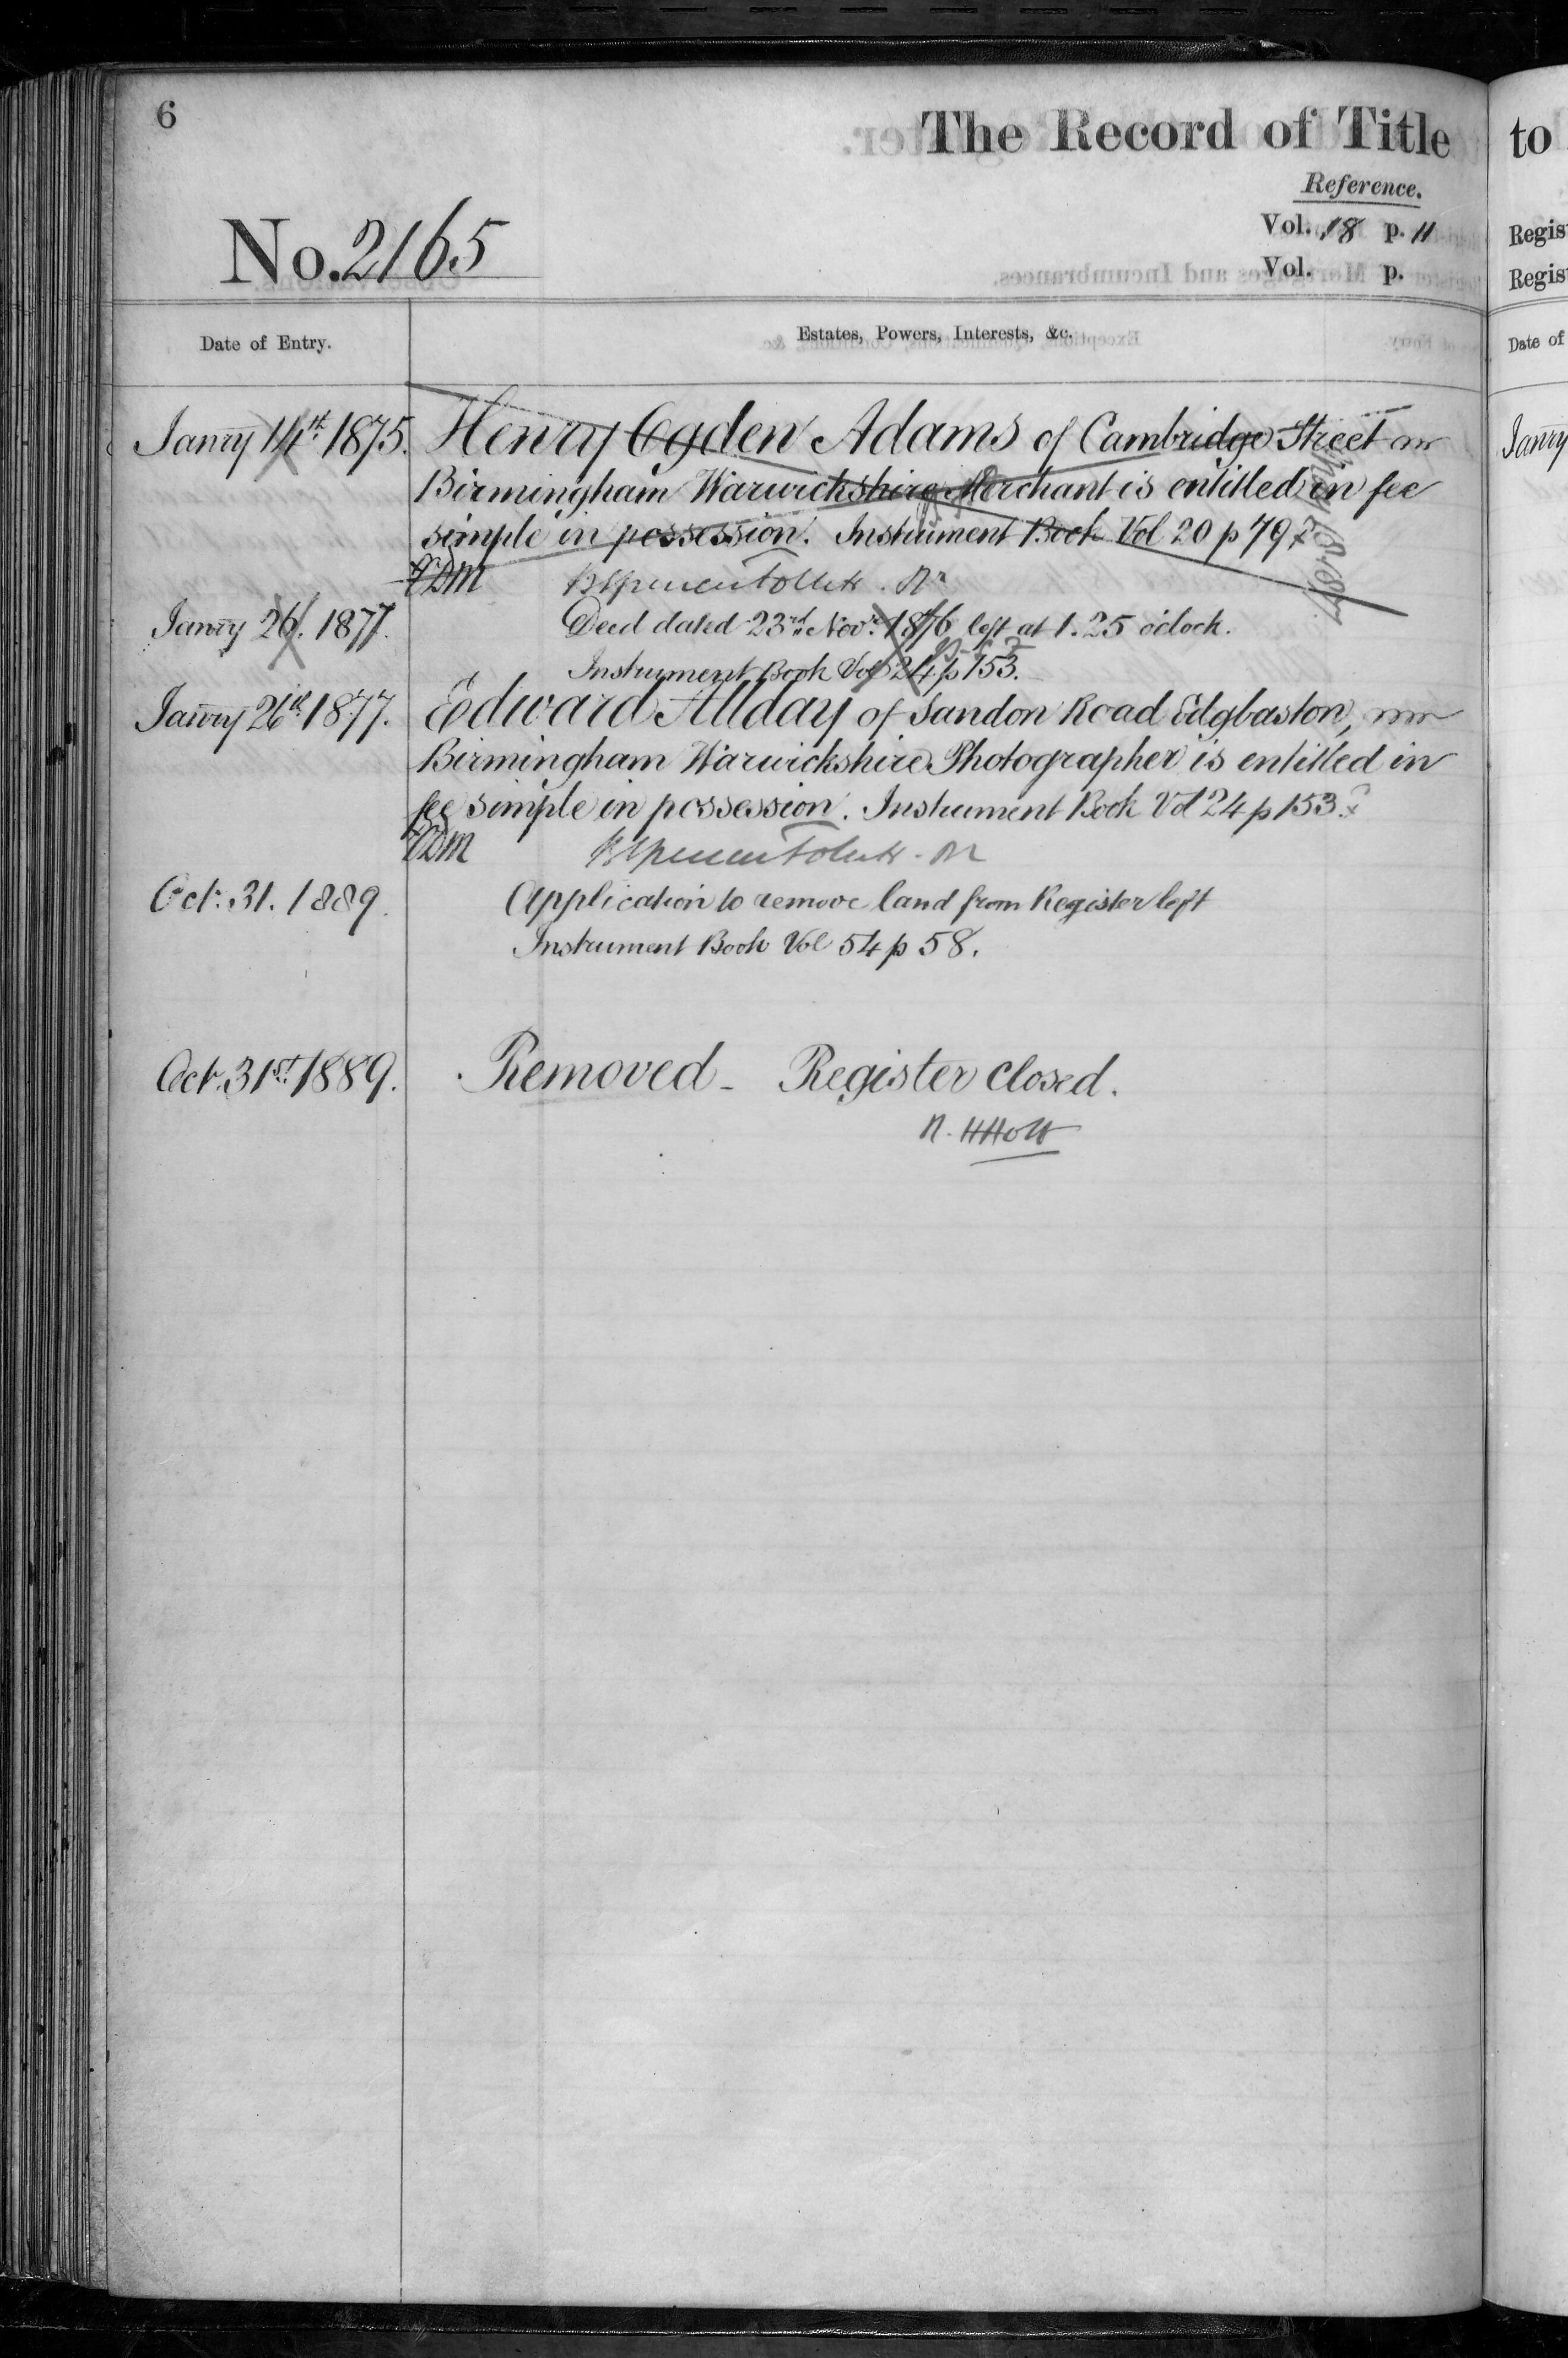 6
The Record of Title
Reference.
No. 2165
Vol. 18 p. 11
Vol. p.
Date of Entry.
Estates, Powers, Interests, &c.
Janry 14th. 1875. Henry Ogden Adams of Cambridge Street
Birmingham Warwickshire Merchant is entitled in fee
simple in possession. Instrument Book Vol 20 p 797
Janry 26. 1877. Deed dated 23rd Novr. 1876 left at 1.25 o'clock.
Instrument Book Vol 24 p 153.
Janry 26th. 1877. Edward Allday of Sandon Road Edgbaston,
Birmingham Warwickshire Photographer is entitled in
fee simple in possession. Instrument Book Vol 24 p 153.
Oct. 31. 1889. Application to remove land from Register left
Instrument Book Vol 54 p 58.
Oct. 31st. 1889. Removed - Register closed.
R. H Holt
to
Regis
Regis
Date of
Janry